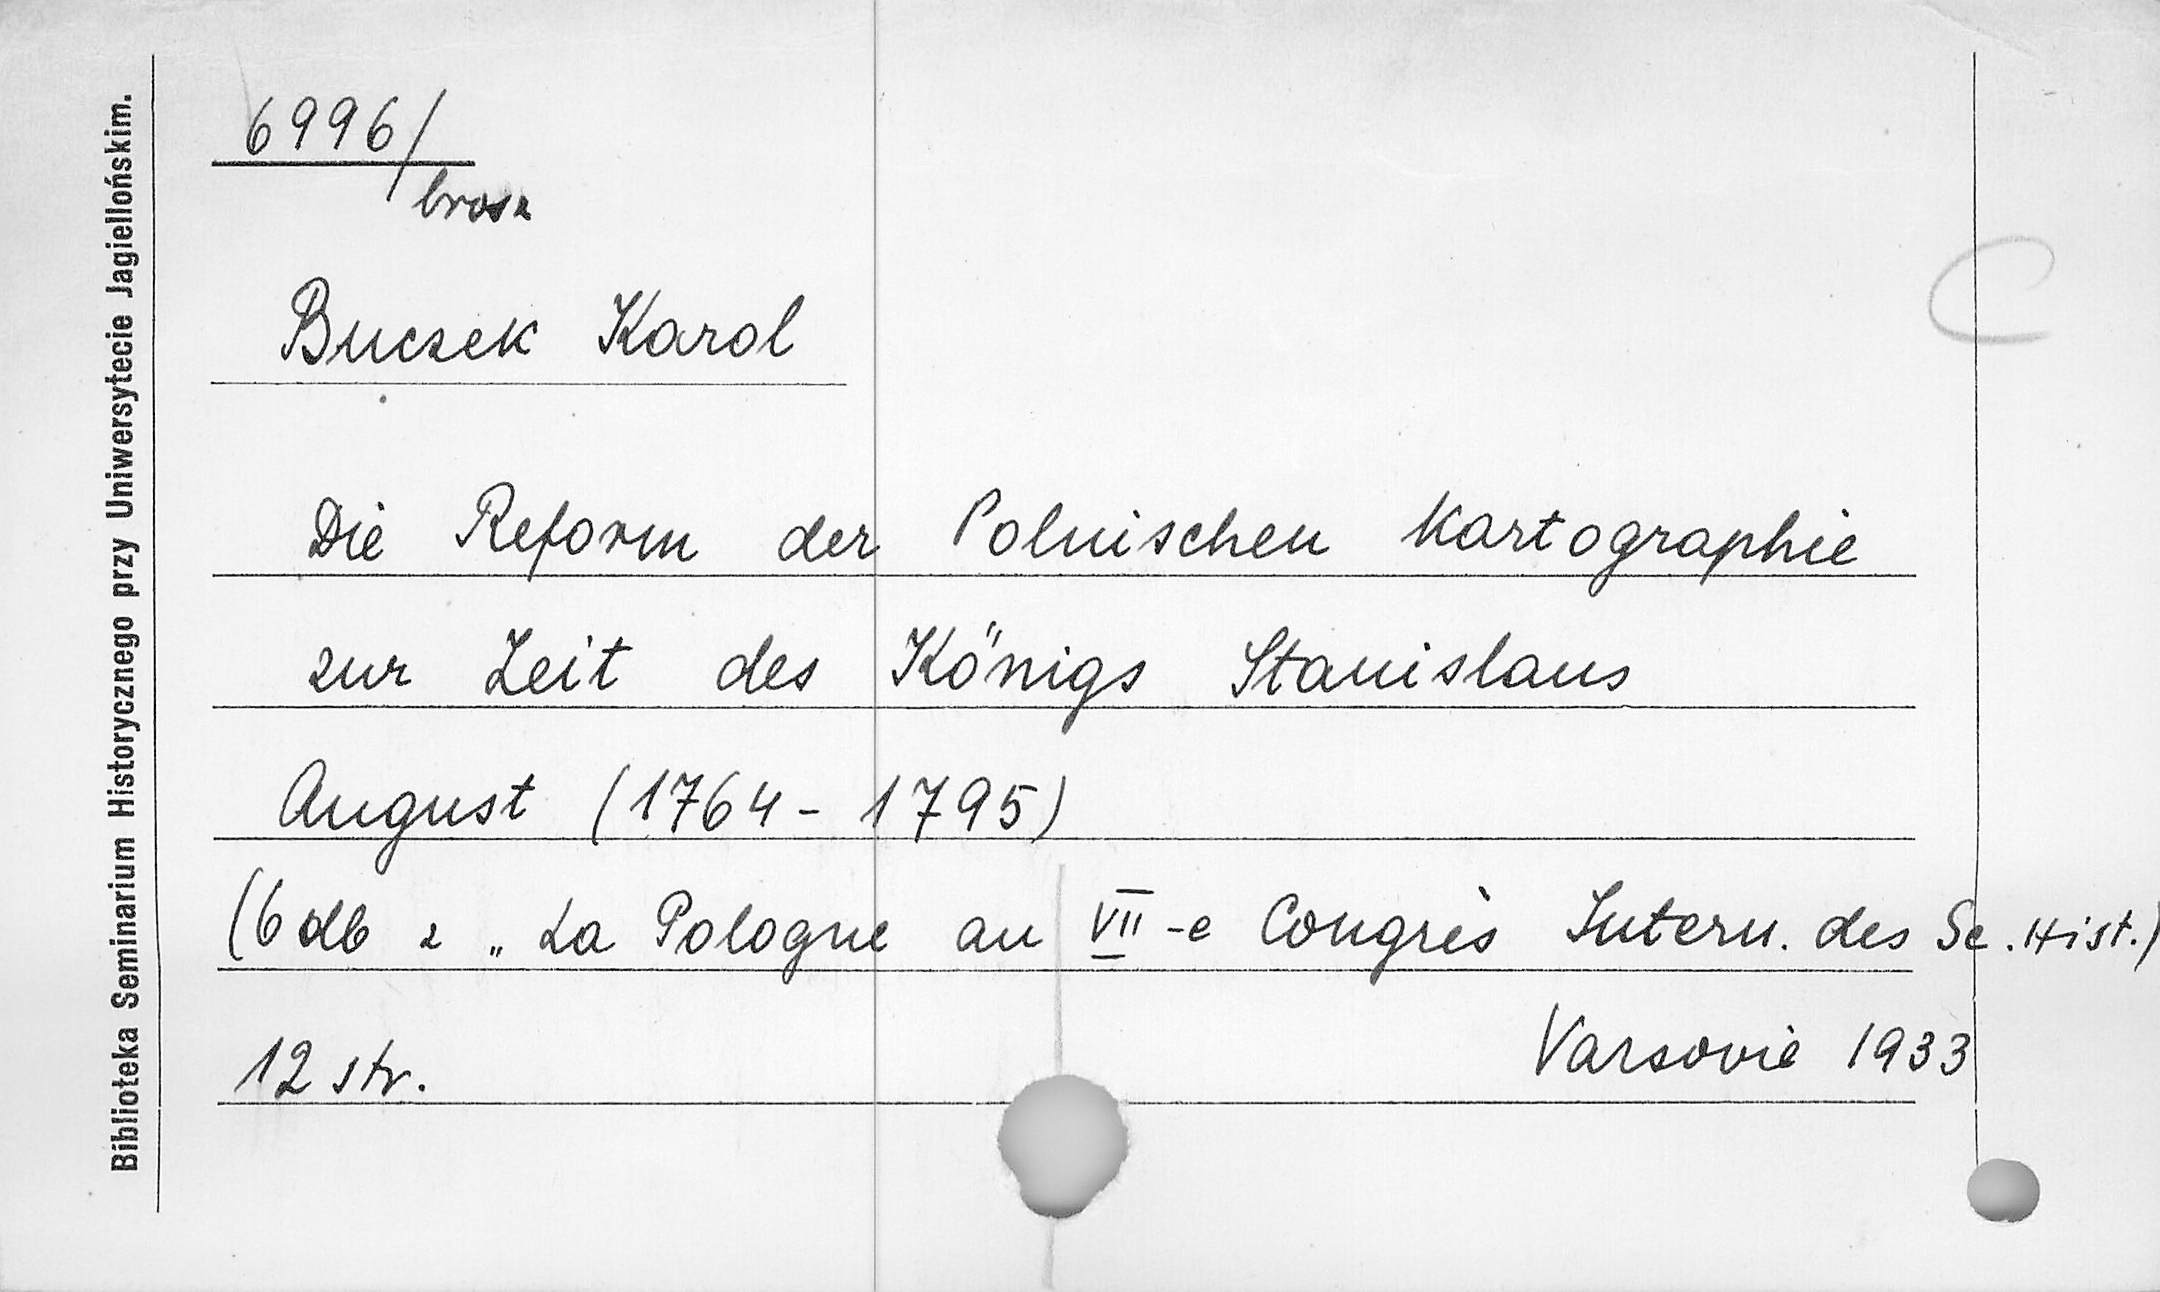 Biblioteka Seminarium Historycznego przy Uniwersytecie Jagiellońskim.
6996/
brosz
Buczek Karol
C
Die Reform der Polnischen Kartographie
zur Zeit des Königs Stanislaus
August (1764-1795)
(odb z „La Pologne au VII-e Congrès Intern. des Sc. Hist.)
Varsovie 1933
12 str.